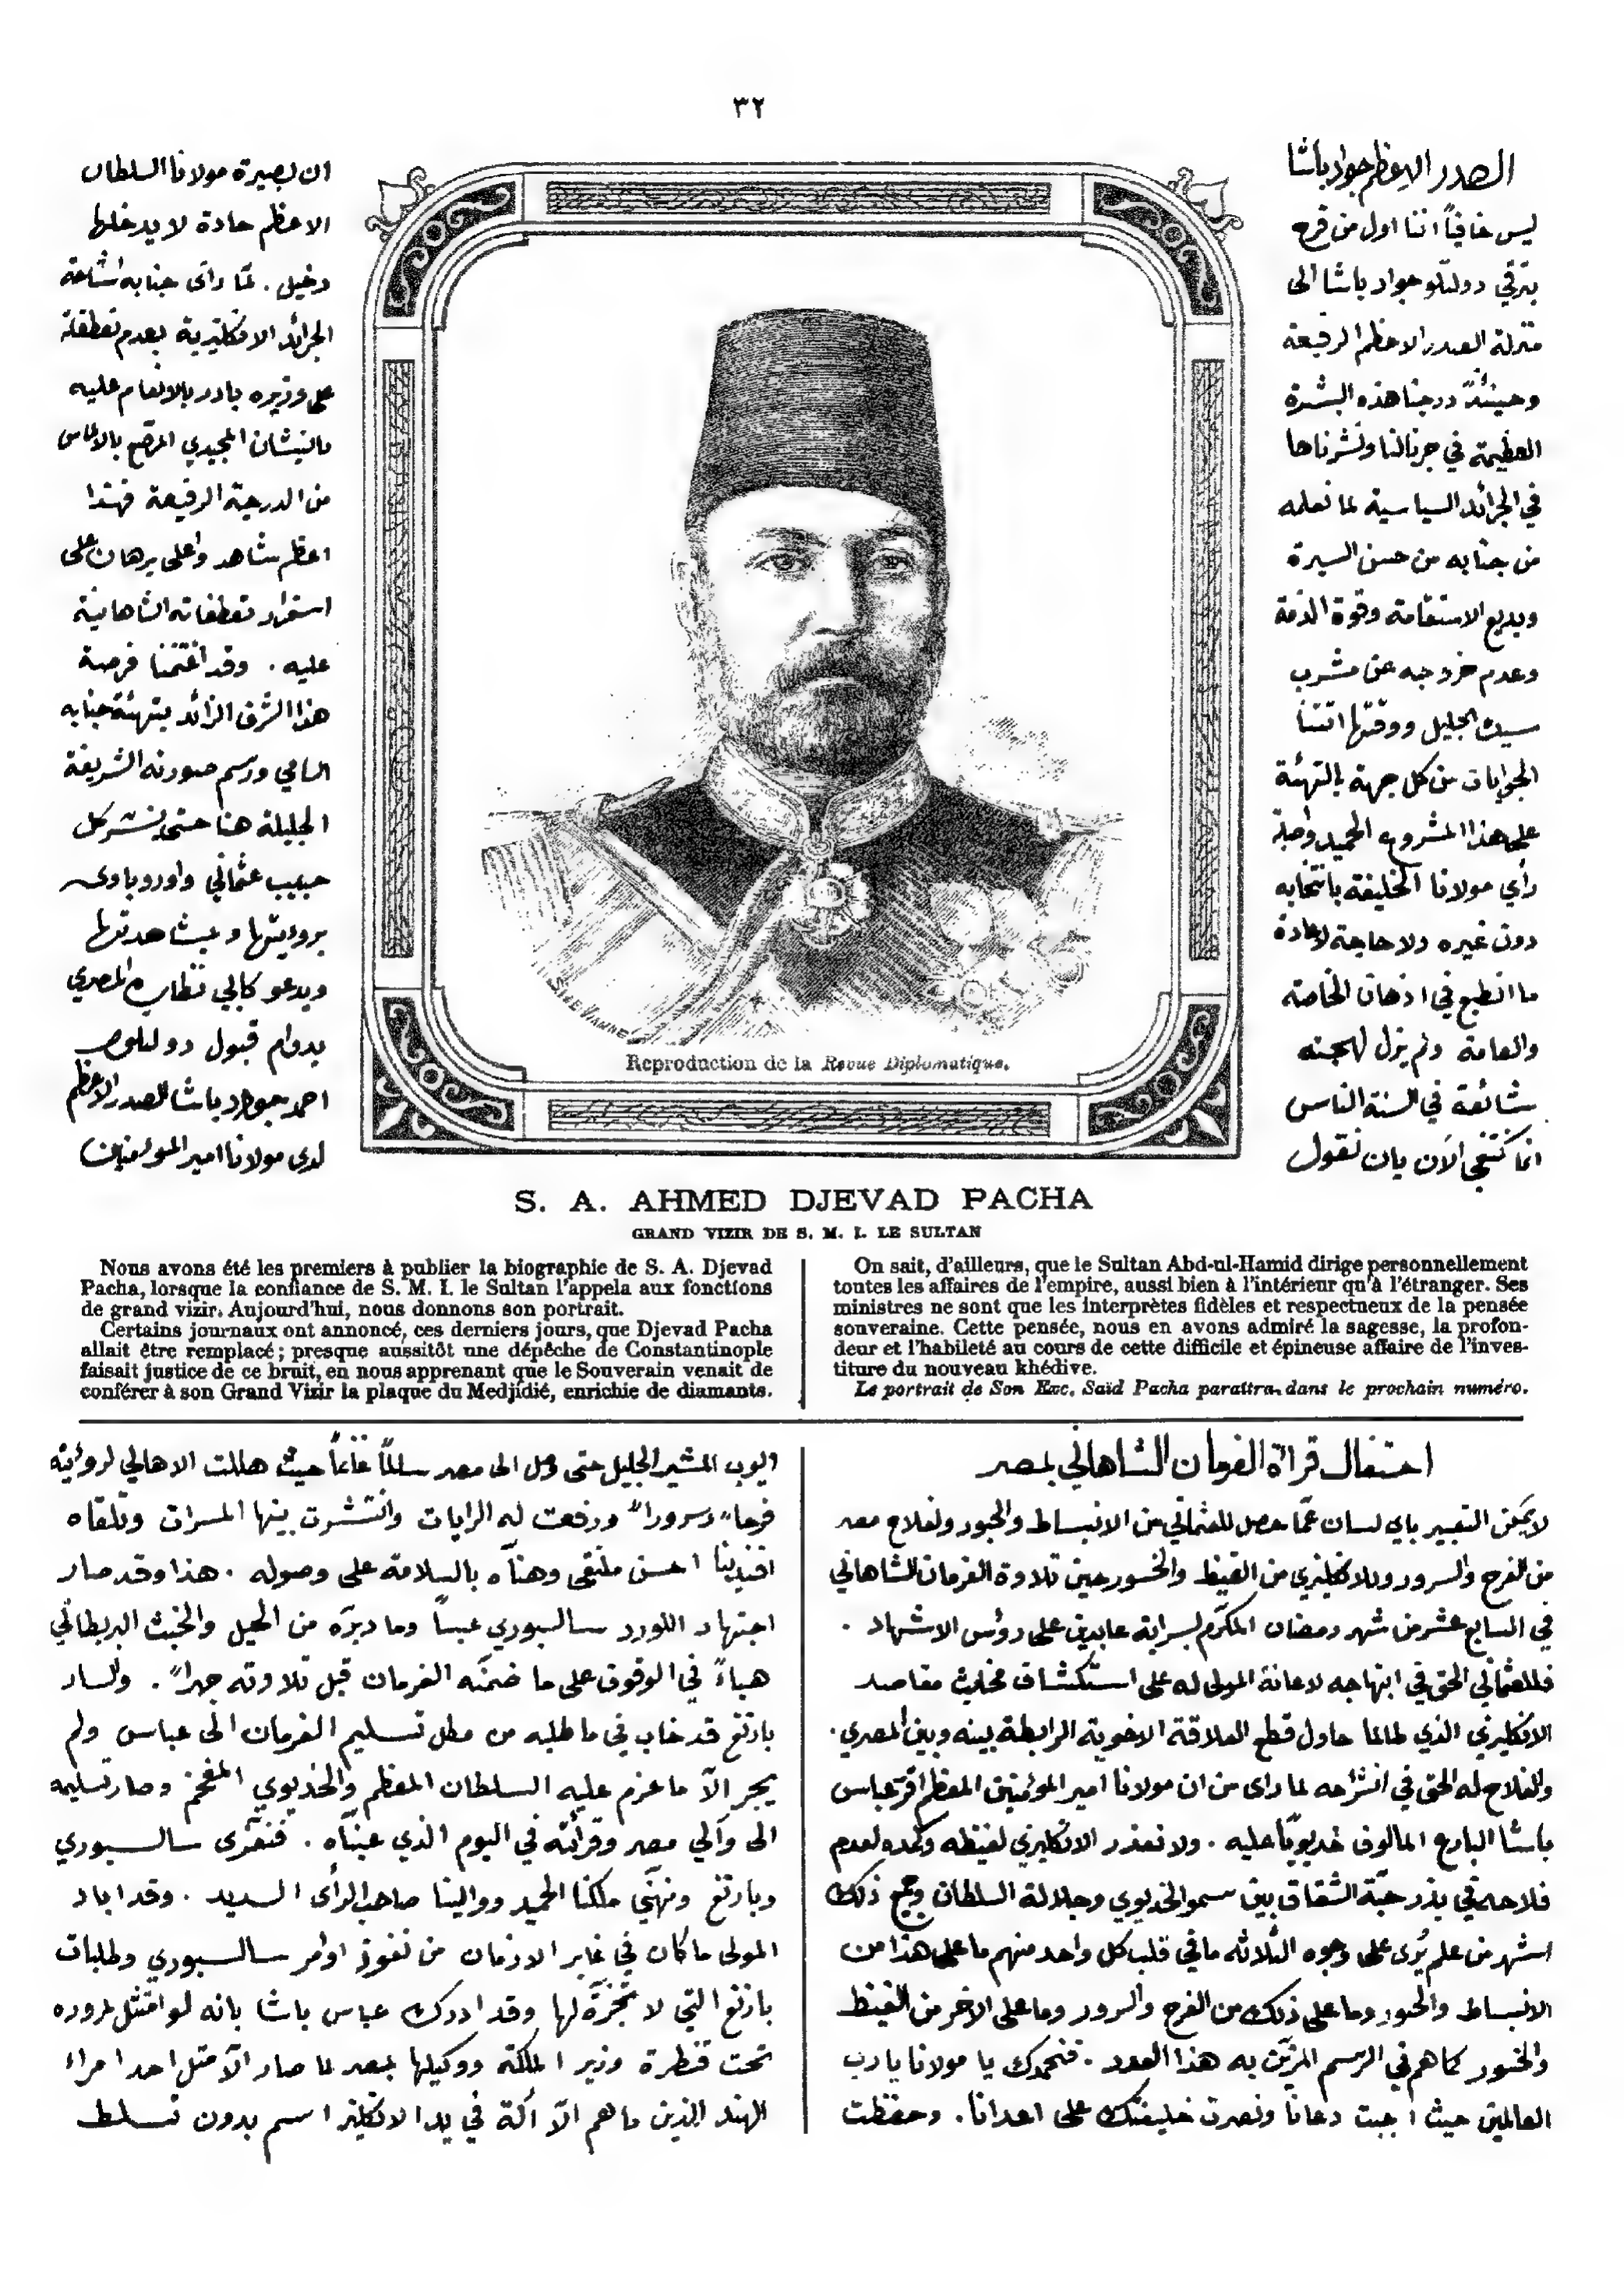 ٣٢
الصدر الاعظم جواد باشا
ليس خافياً اننا اول من فرح
بترقي دولتلو جواد باشا الى
منزلة الصدر الاعظم الرفيعة
وحينئذٍ درجنا هذه البشرة
العظيمة في جرنالنا ونشرناها
في الجرائد السياسية لما نعلمه
من جنابه من حسن السيرة
وبديع الاستقامة وقوة الذمة
وعدم خروجه عن مشرب
سيده الجليل ووقتها اتتنا
الجوابات من كل جهة بالتهنئة
على هذا المشروع الحميد واصابة
رأي مولانا الخليفة بانتخابه
دون غيره ولا حاجة لاعادة
ما انطبع في اذهان الخاصة
والعامة ولم يزل لهجته
شائعة في السنة الناس
انما نكتفي الآن بان نقول
ان بصيرة مولانا السلطان
الاعظم حادة لا يدخلها
دخيل . لما رأى جنابه اشاعة
الجرائد الانكليزية بعدم تعطفه
على وزيره بادر بالانعام عليه
بالنيشان المجيدي المرصع بالالماس
من الدرجة الرفيعة فهذا
اعظم شاهد واعلى برهان على
استمرار تعطفاته الشاهانية
عليه . وقد اغتنمنا فرصة
هذا الشرف الزائد بتهنئة جنابه
السامي ورسم صورته الشريفة
الجليلة هنا حتى ينشر كل
حبيب عثماني واوروباوي
بروءيتها وبمشاهدتها
ويدعو كابي نظاره المصري
بدوام قبول دولتلو
احمد جواد باشا الصدر الاعظم
لدى مولانا امير المومنين
Reproduction de la Revue Diplomatique.
S. A. AHMED DJEVAD PACHA
GRAND VIZIR DE S. M. I. LE SULTAN
Nous avons été les premiers à publier la biographie de S. A. Djevad
Pacha, lorsque la confiance de S. M. I. le Sultan l'appela aux fonctions
de grand vizir. Aujourd'hui, nous donnons son portrait.
Certains journaux ont annoncé, ces derniers jours, que Djevad Pacha
allait être remplacé; presque aussitôt une dépêche de Constantinople
faisait justice de ce bruit, en nous apprenant que le Souverain venait de
conférer à son Grand Vizir la plaque du Medjidié, enrichie de diamants.
On sait, d'ailleurs, que le Sultan Abd-ul-Hamid dirige personnellement
toutes les affaires de l'empire, aussi bien à l'intérieur qu'à l'étranger. Ses
ministres ne sont que les interprètes fidèles et respectueux de la pensée
souveraine. Cette pensée, nous en avons admiré la sagesse, la profon-
deur et l'habileté au cours de cette difficile et épineuse affaire de l'inves-
titure du nouveau khédive.
Le portrait de Son Exc. Saïd Pacha paraîtra dans le prochain numéro.
احتفال قراءة الفرمان الشاهاني بمصر
لا يمكن التعبير باي لسان عما حصل للعثماني من الانبساط والحبور ولفلاح مصر
من الفرح والسرور وللانكليزي من الغيظ والخسور حين تلاوة الفرمان الشاهاني
في السابع عشر من شهر رمضان المكرم بسراية عابدين على رؤس الاشهاد .
فللعثماني الحق في ابتهاجه لاعانة المولى له على استكشاف مخلبث مقاصد
الانكليزي الذي لطالما حاول قطع العلاقة الاخوية الرابطة بينه وبين المصري .
وللفلاح له الحق في انشراحه لما رأى من ان مولانا امير المومنين المعظم اقر عباس
باشا البارع المالوف خديوياً عليه . ولا نعذر الانكليزي لغيظه وكمده لعدم
فلاحه في بذر حبة الشقاق بين سمو الخديوي وجلالة السلطان وجميع ذلك
اشهر من علم يُرى على وجوه الثلاثة ما في قلب كل واحد منهم ما على هذا من
الانبساط والحبور وما على ذلك من الفرح والسرور وما على الاخر من الغيظ
والخسور كما هم في الرسم المزين به هذا العدد . فنحمدك يا مولانا يا رب
العالمين حيث اجبت دعانا ونصرت خليفتك على اعدانا . وحفظت
ايوب المشير الجليل حتى وصل الى مصر سالماً غانماً حيث هللت الاهالي لروئيته
فرحاً وسروراً ورفعت له الرايات وانتشرت بينها المسرات وتلقاه
افندينا احسن ملتقى وهنأه بالسلامة على وصوله . هذا وقد صار
اجتهاد اللورد سالسبوري عبساً وما دبره من الحيل والخبث البريطاني
هباءً في الوقوف على ما ضمنه الفرمان قبل تلاوته جهراً . والسار
بارنغ قد خاب في ما طلبه من مطل تسليم الفرمان الى عباس ولم
يجر الاّ ما عزم عليه السلطان المعظم والخديوي المفخم وصار تسليمه
الى والي مصر وقرأته في اليوم الذي عيناه . فنعزى سالسبوري
وبارنغ ونهني ملكنا الحميد ووالينا صاحب الرأى السديد . وقد اباد
المولى ما كان في غابر الازمان من نفوذ اوامر سالسبوري وطلبات
بارنغ التي لا نجزة لها وقد ادرك عباس باشا بانه لو امتثل لمروره
تحت قنطرة وزير الملكة ووكيلها بمصر لما صار الاّ مثل احد امراء
الهند الذين ما هم الاّ آلة في يد الانكليز اسم بدون تسلط